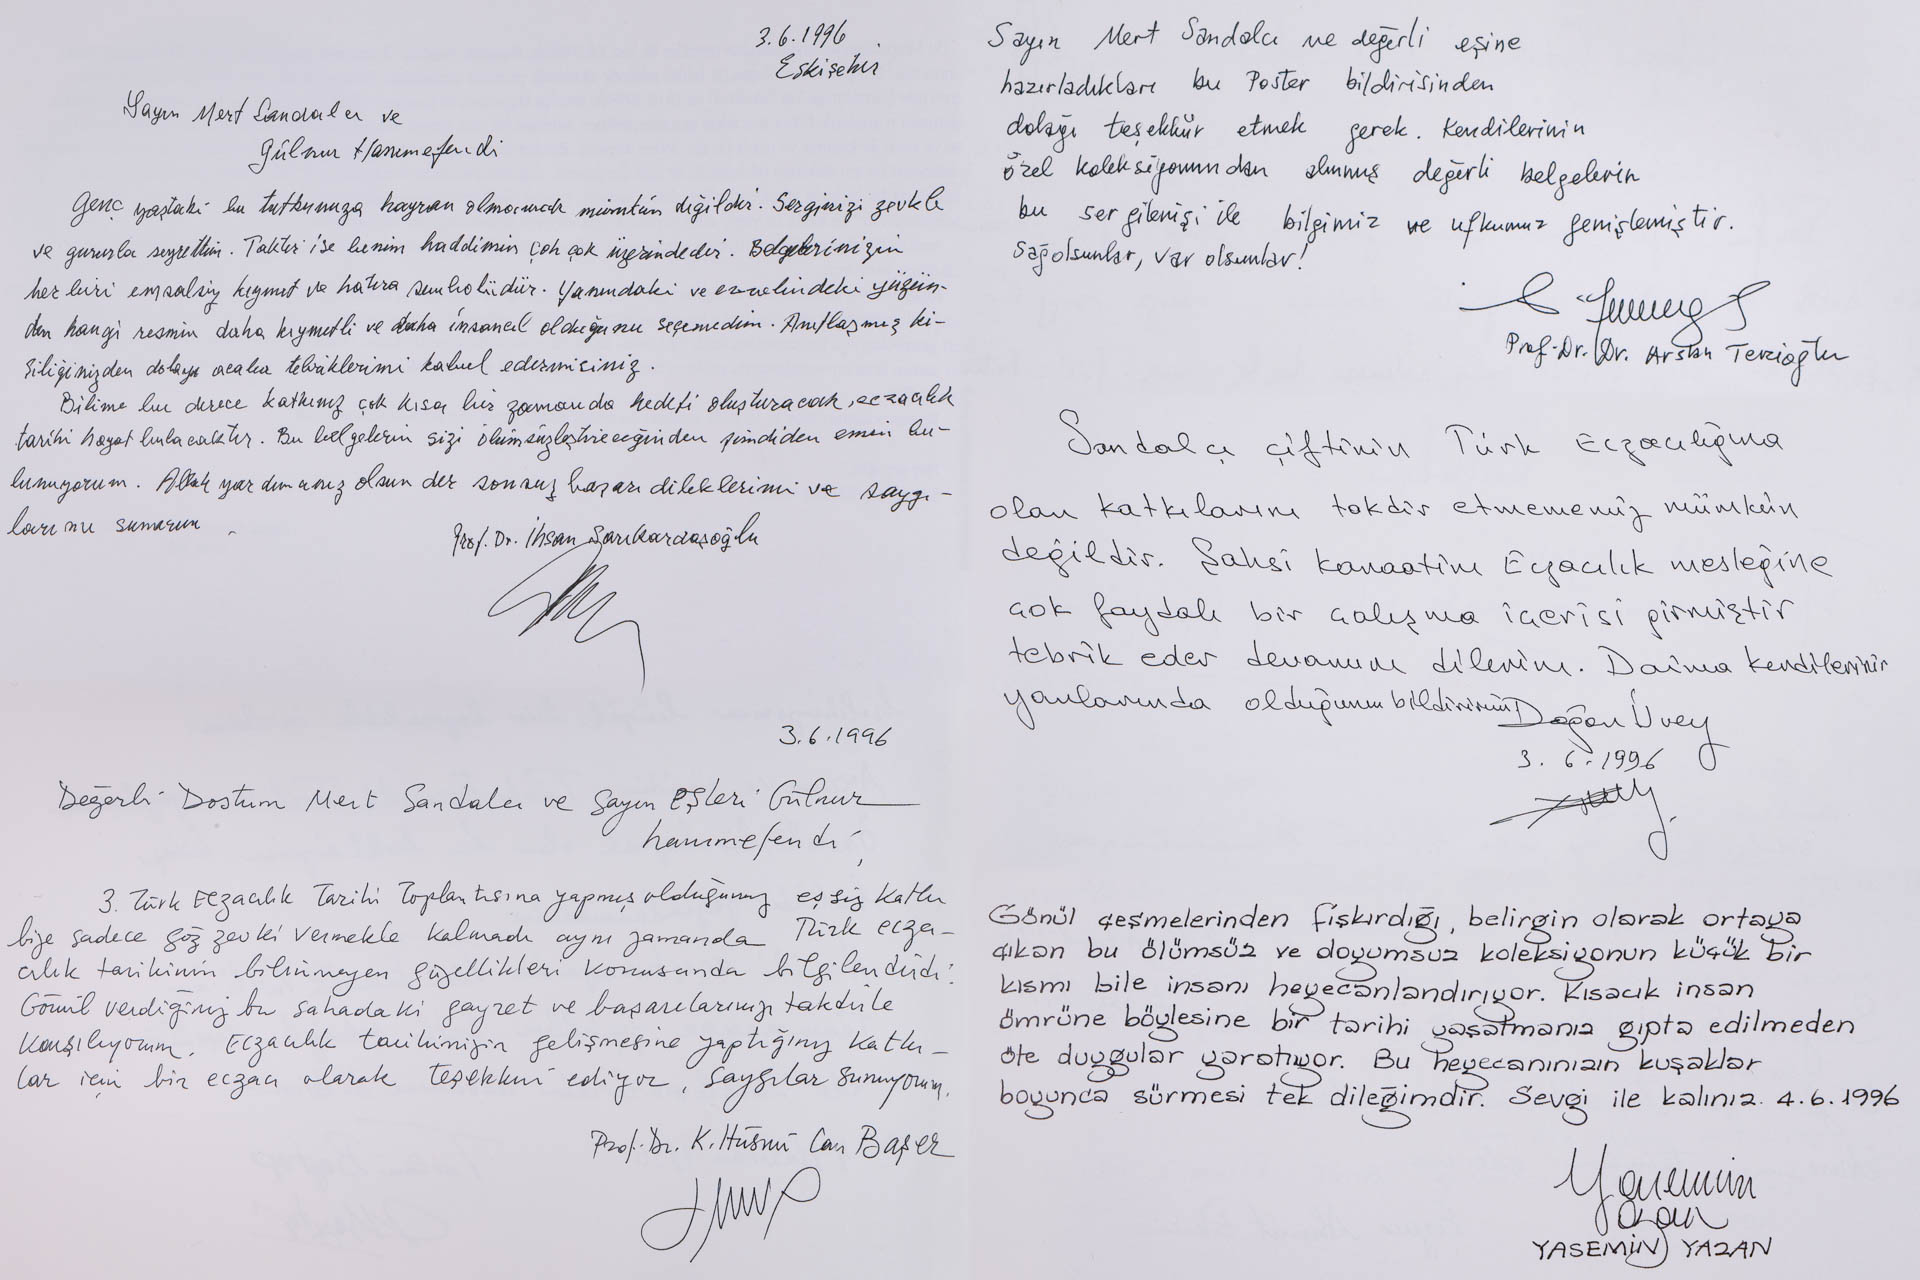 3.6.1996
Eskişehir
Sayın Mert Sandalcı ve
Gülnur Hanımefendi
Genç yaştaki bu tutkunuza hayran olmamak mümkün değildir. Serginizi zevkle
ve gururla seyrettim. Taktir ise benim haddimin çok çok üzerindedir. Belgelerinizin
herbiri emsalsiz kıymet ve hatıra sembolüdür. Yanındaki ve evvelindeki yüzün-
den hangi resmin daha kıymetli ve daha insancıl olduğunu seçemedim. Anıtlaşmış ki-
şiliğinizden dolayı acaba tebriklerimi kabul edermisiniz.
Bilime bu derece katkınız çok kısa bir zamanda hedefi oluşturacak, eczacılık
tarihi hayat bulacaktır. Bu belgelerin sizi ölümsüzleştireceğinden şimdiden emin bu-
lunuyorum. Allah yardımcınız olsun der sonsuz başarı dileklerimi ve saygı-
larımı sunarım.
Prof. Dr. İhsan Sarıkardaşoğlu
3.6.1996
Değerli Dostum Mert Sandalcı ve Sayın Eşleri Gülnur
hanımefendi,
3. Türk Eczacılık Tarihi Toplantısına yapmış olduğunuz eşsiz katkı
bize sadece göz zevki vermekle kalmadı aynı zamanda Türk ecza-
cılık tarihinin bilinmeyen güzellikleri konusunda bilgilendirdi.
Gönül verdiğiniz bu sahadaki gayret ve başarılarınızı taktirle
karşılıyorum. Eczacılık tarihimizin gelişmesine yaptığınız katkı-
lar için bir eczacı olarak teşekkür ediyor, saygılar sunuyorum.
Prof. Dr. K. Hüsnü Can Başer
Sayın Mert Sandalcı ve değerli eşine
hazırladıkları bu Poster bildirisinden
dolayı teşekkür etmek gerek. Kendilerinin
özel koleksiyonundan alınmış değerli belgelerin
bu sergilenişi ile bilgimiz ve ufkumuz genişlemiştir.
Sağolsunlar, var olsunlar!
Prof. Dr. Dr. Arslan Terzioğlu
Sandalcı çiftinin Türk Eczacılığına
olan katkılarını takdir etmememiz mümkün
değildir. Şahsi kanaatim Eczacılık mesleğine
çok faydalı bir çalışma içerisi girmiştir
tebrik eder devamını dilerim. Daima kendilerinin
yanlarında olduğumu bildiririm
Doğan Üvey
3.6.1996
Gönül çeşmelerinden fışkırdığı, belirgin olarak ortaya
çıkan bu ölümsüz ve doyumsuz koleksiyonun küçük bir
kısmı bile insanı heyecanlandırıyor. Kısacık insan
ömrüne böylesine bir tarihi yaşatmanız gıpta edilmeden
öte duygular yaratıyor. Bu heyecanınızın kuşaklar
boyunca sürmesi tek dileğimdir. Sevgi ile kalınız. 4.6.1996
Yasemin
Yazan
YASEMİN YAZAN